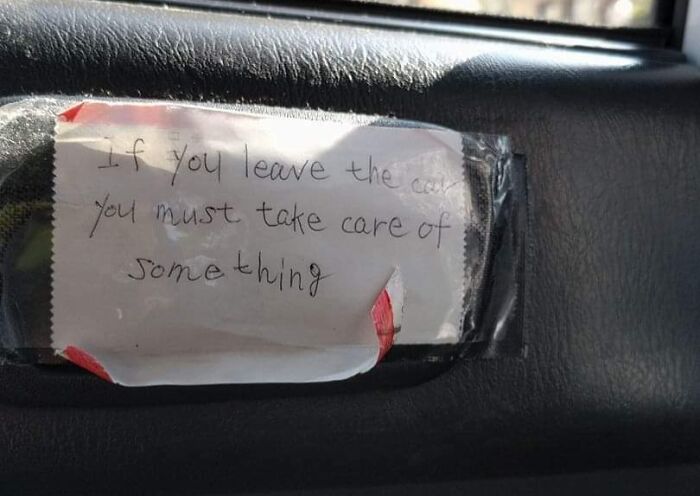 If you leave the car
you must take care of
something